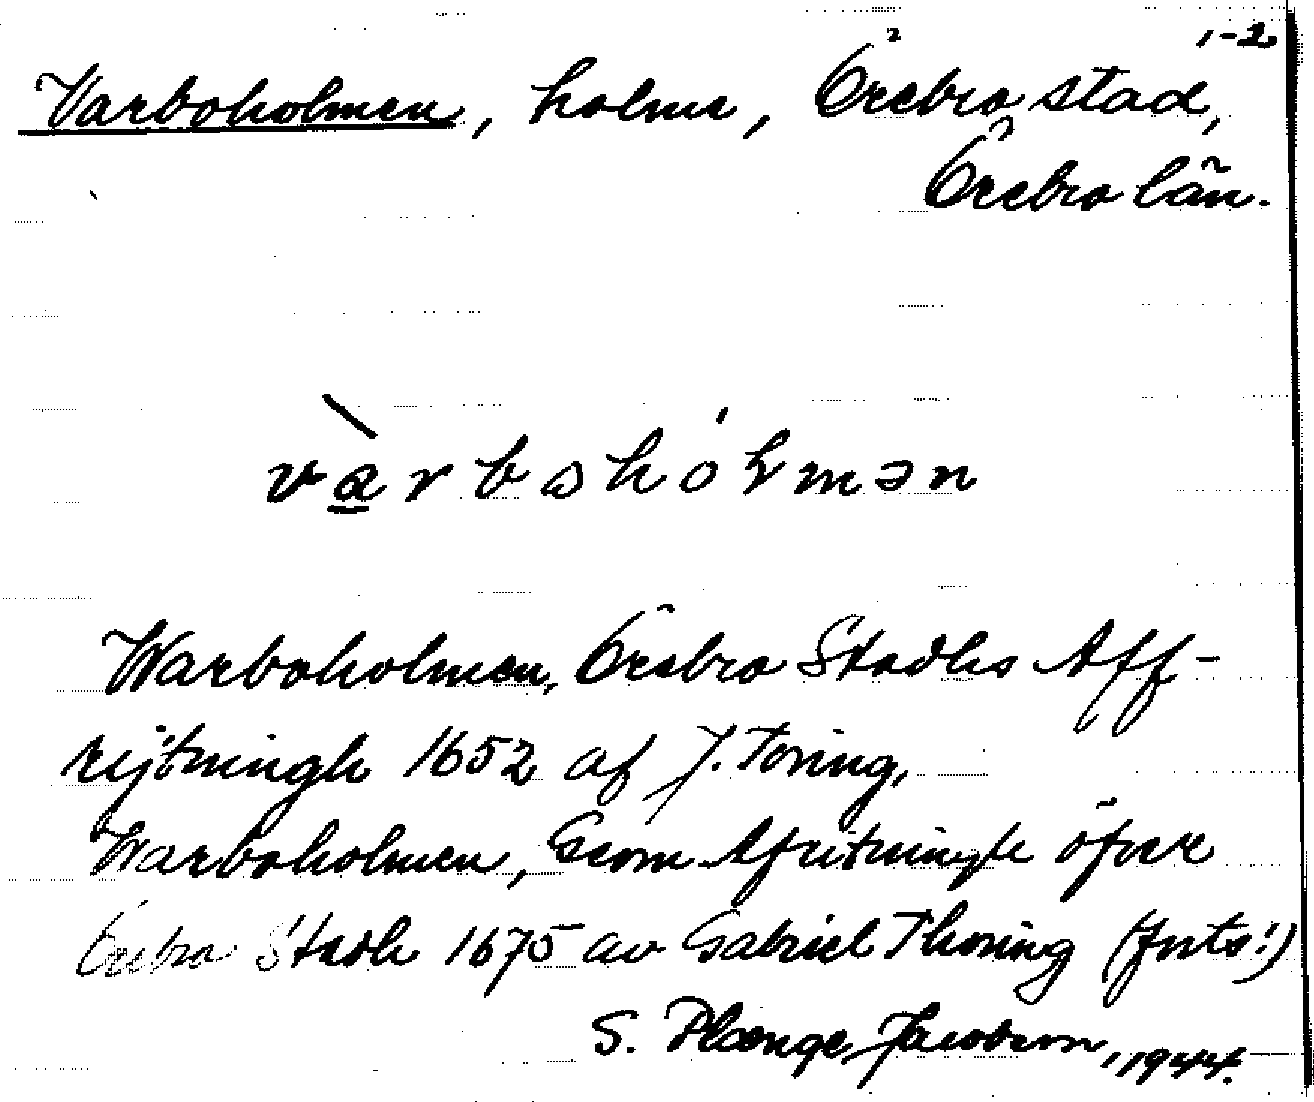 1-2
Varboholmen, holme, Örebro stad,
Örebro län.
và̲rboshólmən
Warboholmen, Örebro Stadhs Aff-
rijtningh 1652 af J. Toring,
Warboholmen, Geom Afritningh öfver
Örebro Stadh 1675 av Gabriel Thoring (forts!)
S. Plænge Jacobson, 1944.